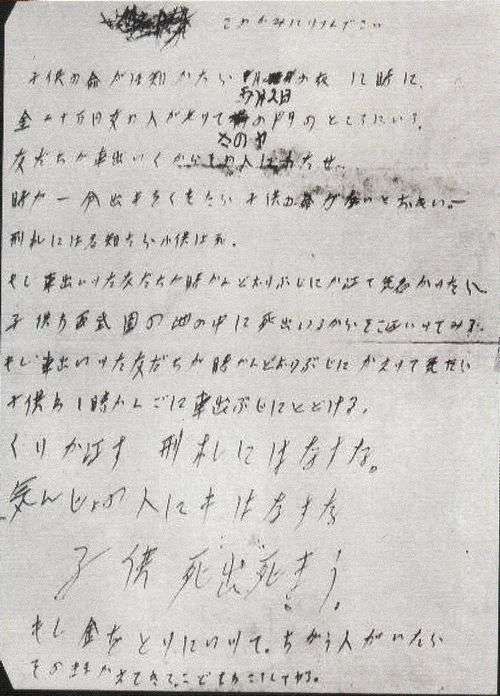 このかみにツツんでこい
子供の命がほ知かたら五月2日の夜12時に、
金二十万円女の人がもツてさのヤの門のところにいろ。
友だちが車出いくからその人にわたせ。
時が一分出もをくれたら子供の命がないとおもい。
刑札には名知たら小供は死。
もし車出いツた友だちが時かんどおりぶじにかえて気名かツたら
子供わ西武園の池の中に死出いるからそこ江いツてみろ。
もし車出いツた友だちが時かんどおりぶじにかえツて気たら
子供わ1時かんごに車出ぶじにとどける。
くりかえす 刑札にはなすな。
気んじょの人にもはなすな
子供死出死まう。
もし金をとりにいツて、ちがう人がいたら
そのままかえてきて、こどもわころしてヤる。